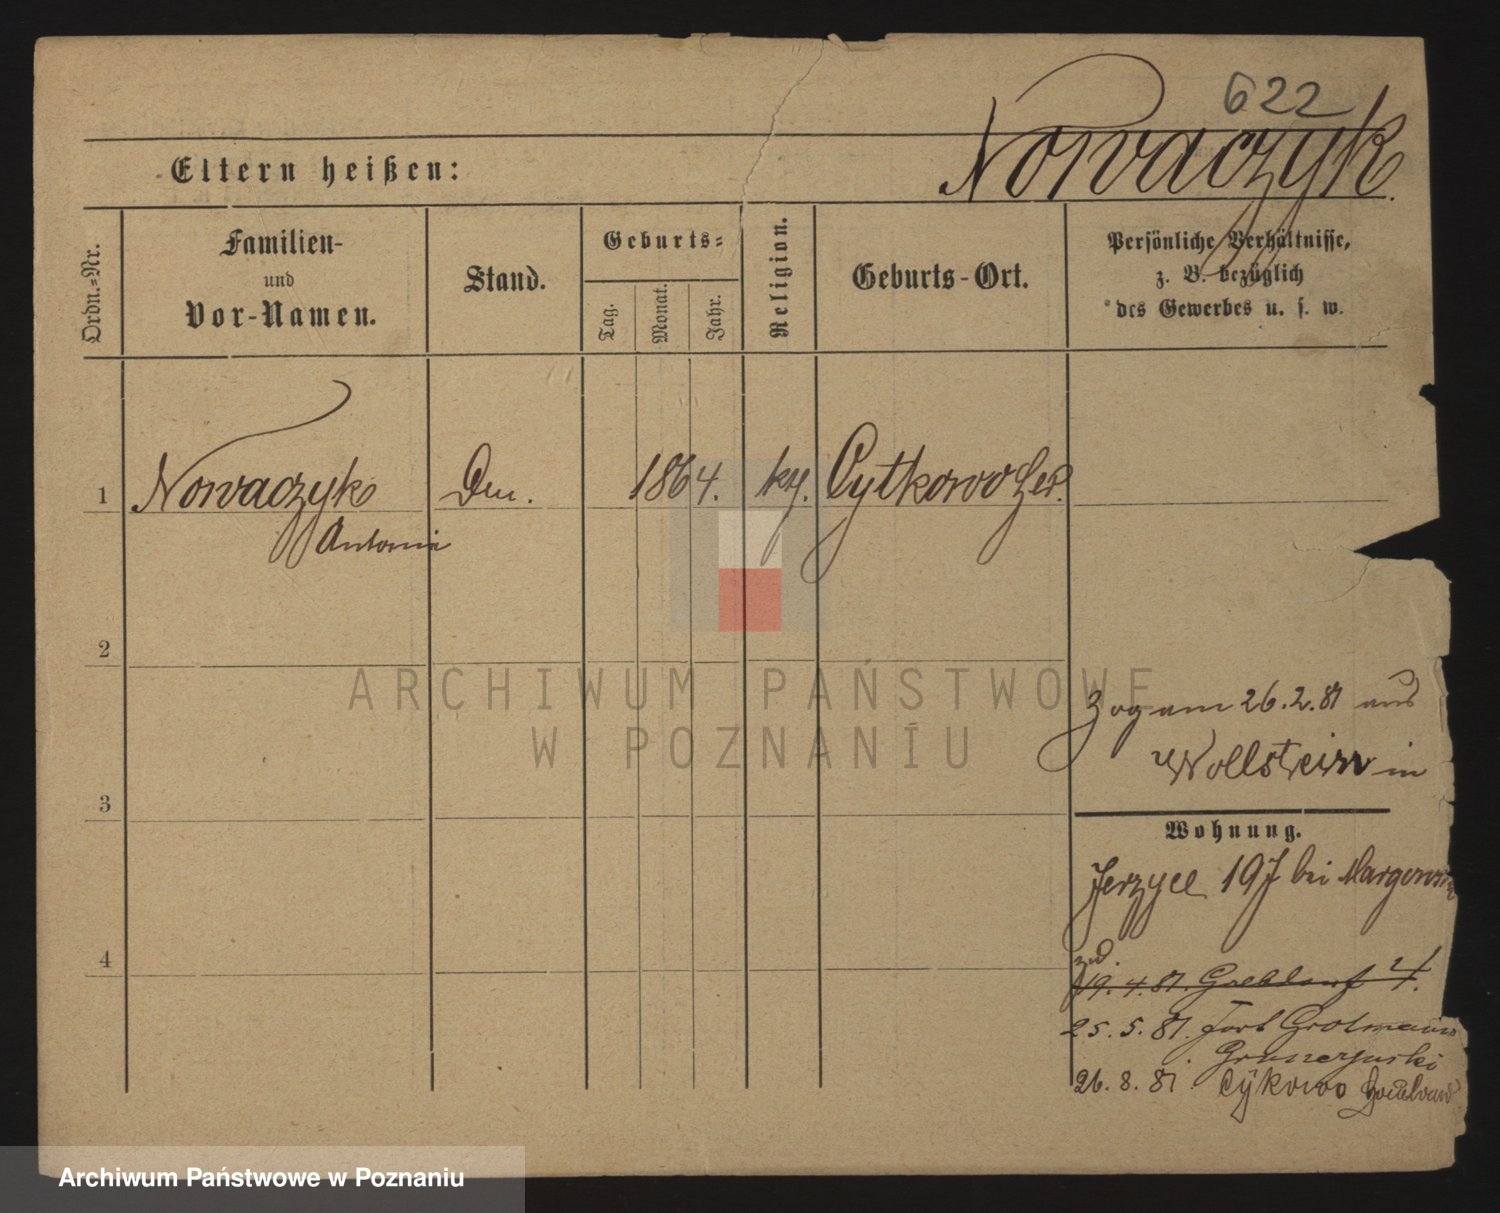 622
Nowaczyk.
Eltern heißen:
Ordn.=Nr.
Familien-
und
Vor-Namen.
Stand.
Geburts=
Tag.
Monat.
Jahr.
Religion.
Geburts-Ort.
Persönliche Verhältnisse,
z. B. bezüglich
des Gewerbes u. s. w.
1 Nowaczyk 1864. Cytkowo
Antonie
2
3
4
Zog am 26.2.81 aus
Wollstein in
Wohnung.
Jerzyce 197 bei
19.4.81. 4.
25.5.81. Fort Grolmann
26.8.81 Cykowo
ARCHIWUM PAŃSTWOWE
W POZNANIU
Archiwum Państwowe w Poznaniu